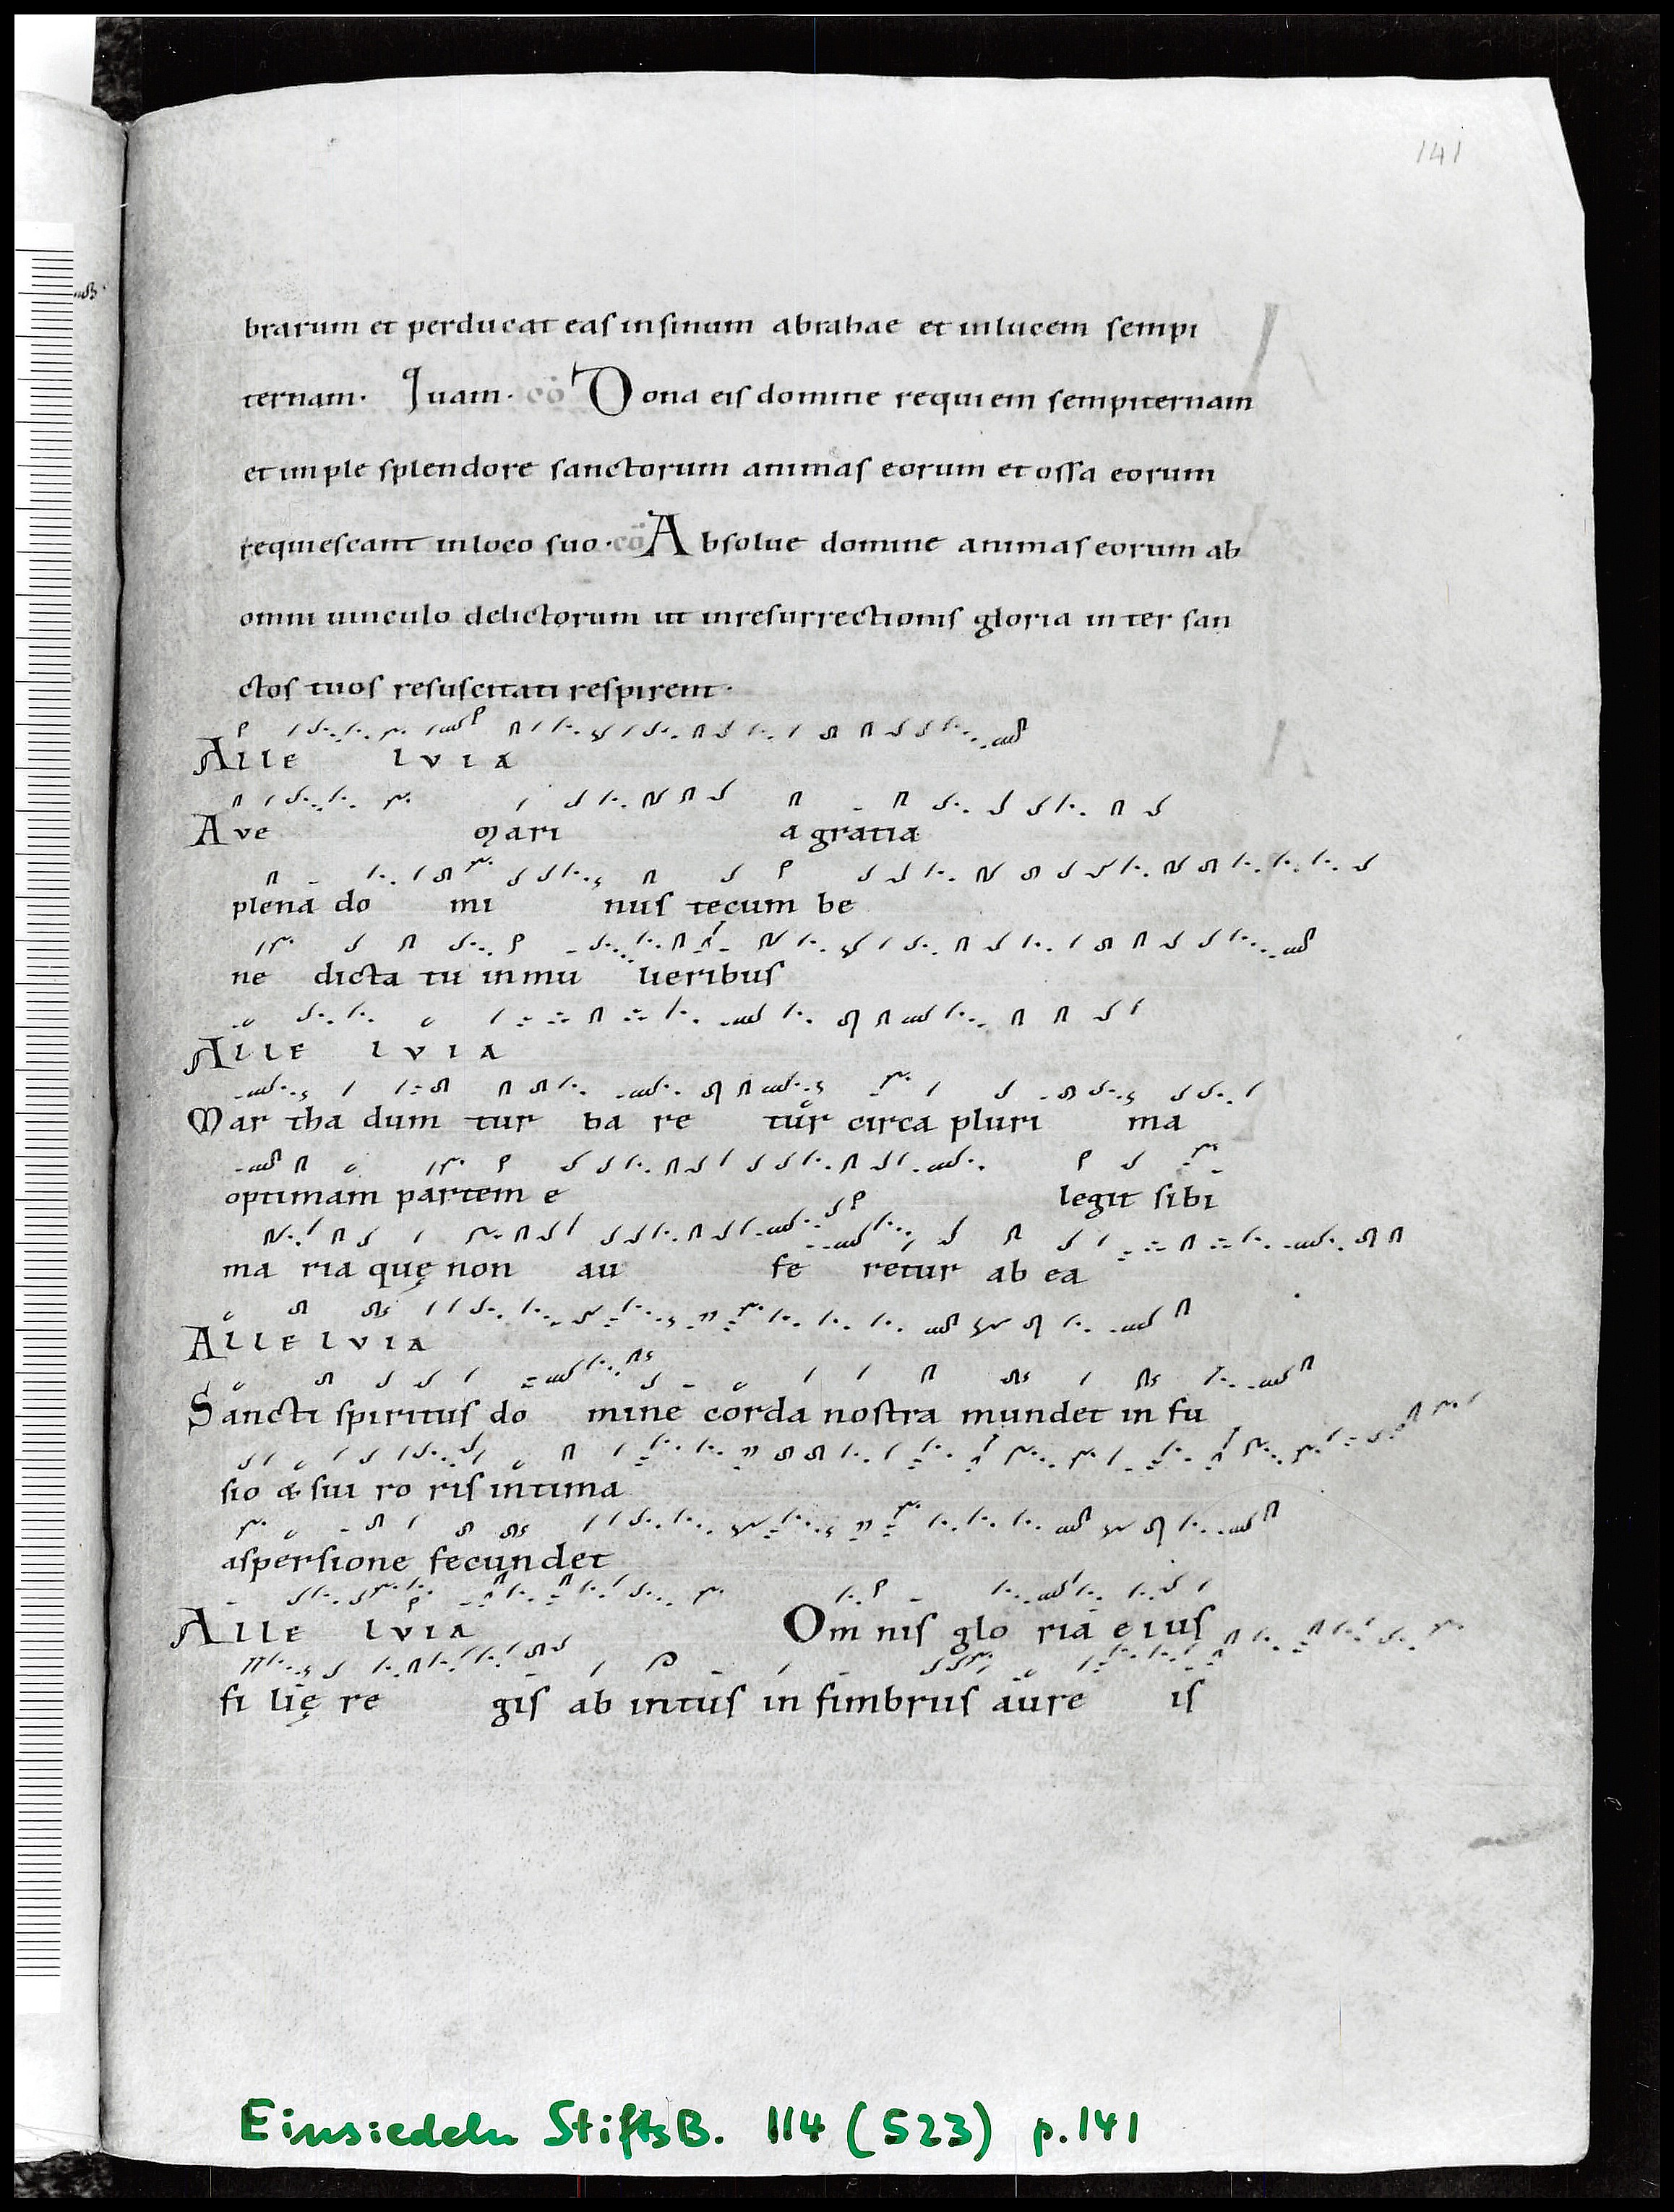 141
brarum et perducat eas insinum abrahae et inlucem sempi
ternam. Quam. co Dona eis domine requiem sempiternam
et imple splendore sanctorum animas eorum et ossa eorum
requiescant inloco suo. co Absolue domine animas eorum ab
omni uinculo delictorum ut inresurrectionis gloria inter san
ctos tuos resuscitati respirent.
Alle lvia
Ave Mari a gratia
plena do mi nus tecum be
ne dicta tu inmu lieribus
Alle lvia
Mar tha dum tur ba re tur circa pluri ma
optimam partem e legit sibi
ma ria quę non au fe retur ab ea
Allelvia
Sancti spiritus do mine corda nostra mundet in fu
sio & sui ro ris intima
aspersione fecundet
Alle lvia Om nis glo ria eius
fi lię re gis ab intus in fimbriis aure is
Einsiedeln StiftsB. 114 (523) p. 141